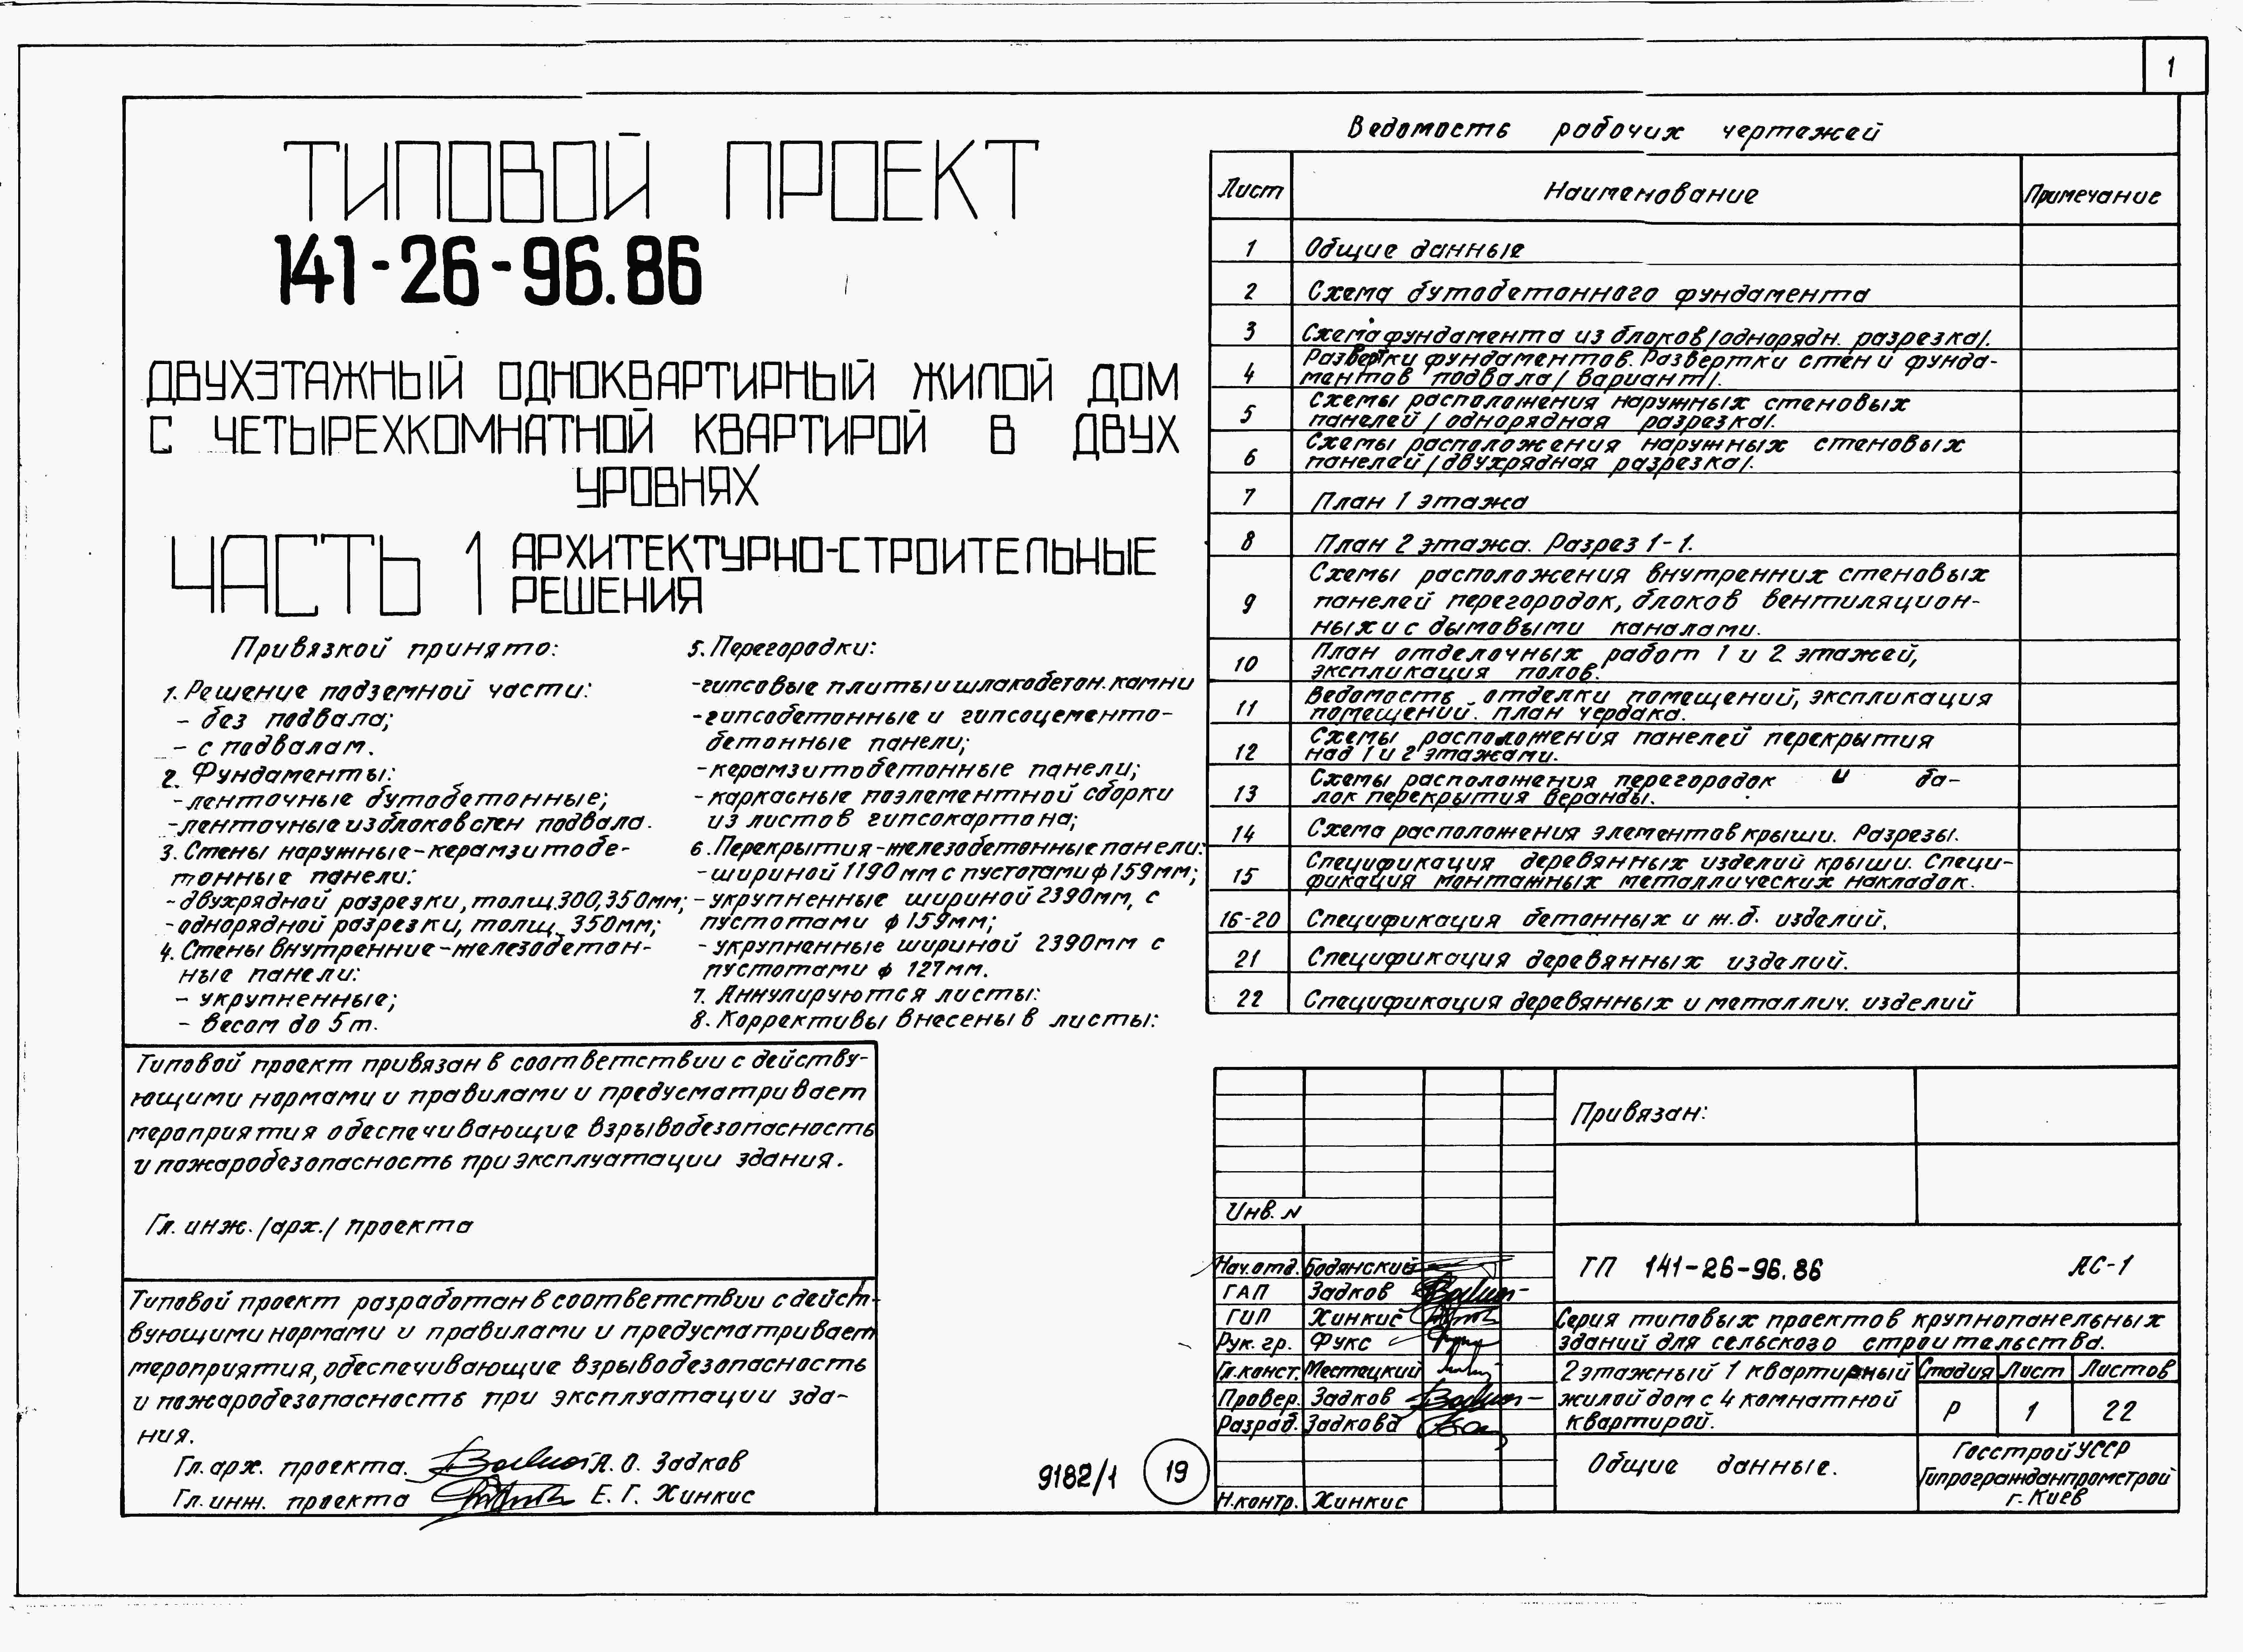 1
ТИПОВОЙ ПРОЕКТ
141-26-96.86
ДВУХЭТАЖНЫЙ ОДНОКВАРТИРНЫЙ ЖИЛОЙ ДОМ
С ЧЕТЫРЕХКОМНАТНОЙ КВАРТИРОЙ В ДВУХ
УРОВНЯХ
ЧАСТЬ 1 АРХИТЕКТУРНО-СТРОИТЕЛЬНЫЕ
РЕШЕНИЯ
Привязкой принято:
1. Решение подземной части:
- без подвала;
- с подвалом.
2. Фундаменты:
- ленточные бутобетонные;
- ленточные из блоков стен подвала.
3. Стены наружные - керамзитобе-
тонные панели:
- двухрядной разрезки, толщ. 300, 350мм;
- однорядной разрезки, толщ. 350мм;
4. Стены внутренние - железобетон-
ные панели:
- укрупненные;
- весом до 5 т.
5. Перегородки:
- гипсовые плиты и шлакобетон. камни
- гипсобетонные и гипсоцементо-
бетонные панели;
- керамзитобетонные панели;
- каркасные поэлементной сборки
из листов гипсокартона;
6. Перекрытия - железобетонные панели:
- шириной 1190мм с пустотами ф 159мм;
- укрупненные шириной 2390мм, с
пустотами ф 159мм;
- укрупненные шириной 2390мм с
пустотами ф 127мм.
7. Аннулируются листы:
8. Коррективы внесены в листы:
Типовой проект привязан в соответствии с действу-
ющими нормами и правилами и предусматривает
мероприятия обеспечивающие взрывобезопасность
и пожаробезопасность при эксплуатации здания.
Гл. инж. /арх./ проекта
Типовой проект разработан в соответствии с дейст-
вующими нормами и правилами и предусматривает
мероприятия, обеспечивающие взрывобезопасность
и пожаробезопасность при эксплуатации зда-
ния.
Гл. арх. проекта. А. О. Задков
Гл. инж. проекта Е. Г. Хинкис
9182/1 19
Ведомость рабочих чертежей
Лист Наименование Примечание
1 Общие данные
2 Схема бутобетонного фундамента
3 Схема фундамента из блоков /однорядн. разрезка/.
4 Развертки фундаментов. Развертки стен и фунда-
ментов подвала /вариант/.
5 Схемы расположения наружных стеновых
панелей /однорядная разрезка/.
6 Схемы расположения наружных стеновых
панелей /двухрядная разрезка/.
7 План 1 этажа
8 План 2 этажа. Разрез 1-1.
9 Схемы расположения внутренних стеновых
панелей перегородок, блоков вентиляцион-
ных и с дымовыми каналами.
10 План отделочных работ 1 и 2 этажей,
экспликация полов.
11 Ведомость отделки помещений, экспликация
помещений. План чердака.
12 Схемы расположения панелей перекрытия
над 1 и 2 этажами.
13 Схемы расположения перегородок и ба-
лок перекрытия веранды.
14 Схема расположения элементов крыши. Разрезы.
15 Спецификация деревянных изделий крыши. Специ-
фикация монтажных металлических накладок.
16-20 Спецификация бетонных и ж.б. изделий.
21 Спецификация деревянных изделий.
22 Спецификация деревянных и металлич. изделий
Привязан:
Инв. N
Нач. отд. Бодянский
ГАП Задков
ГИП Хинкис
Рук. гр. Фукс
Гл. конст. Местецкий
Провер. Задков
Разраб. Задкова
Н. контр. Хинкис
ТП 141-26-96.86 АС-1
Серия типовых проектов крупнопанельных
зданий для сельского строительства.
2 этажный 1 квартирный
жилой дом с 4 комнатной
квартирой.
Стадия Лист Листов
Р 1 22
Общие данные.
Госстрой УССР
Гипрогражданпромстрой
г. Киев